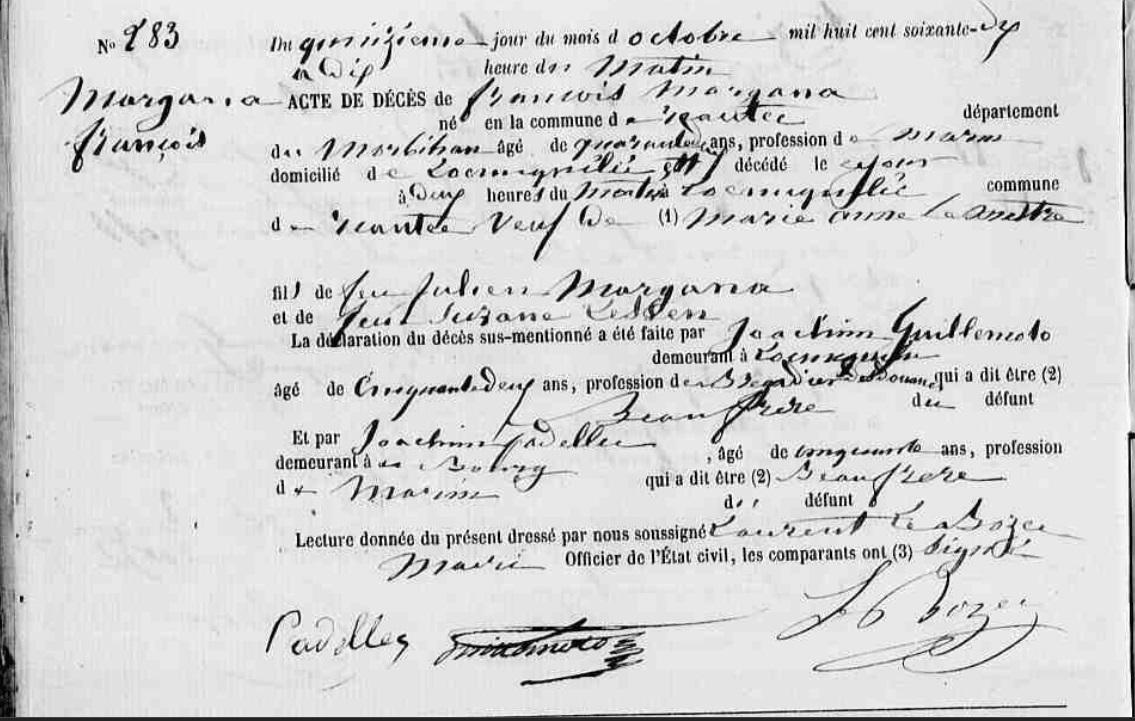 No 283
Du quinzieme jour du mois d octobre mil huit cent soixante-dix
a Dix heure du Matin
Margana
françois
ACTE DE DÉCÈS de françois Margana
né en la commune d e département
du Morbihan âgé de ans, profession d e marin
domicilié d e décédé le
à Deux heures du Matin à commune
d e veuf de (1) Marie anne
fils de feu Julien Margana
et de feue Suzane
La déclaration du décès sus-mentionné a été faite par Joachim Guillemoto
demeurant à
âgé de Cinquante deux ans, profession de Brigadier des Douanes qui a dit être (2)
Beau frere du défunt
Et par Joachim Padellec
demeurant à au Bourg , âgé de cinquante ans, profession
d e Marin qui a dit être (2) Beau frere
du défunt
Lecture donnée du présent dressé par nous soussigné Laurent Le Bozec
Maire Officier de l'État civil, les comparants ont (3) signé
Padellec Guillemoto Le Bozec